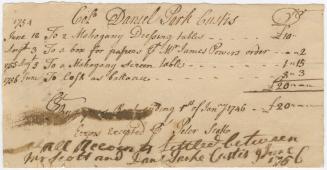 1754 Colo. Daniel Park Custis
June 12 To 2 Mahogany Dressing tables £10
Augst 3 To a box for papers pr. Mr. James Powers order 2
1755 Augst 3 To a Mahogany Screen table 1 15
1756 June To Cash as ballance 8 3
£20
1746 £20
Errors excepted Pr Peter Scott
all accounts settled between
Mr Scott and Danl Parke Custis 9 June
1756